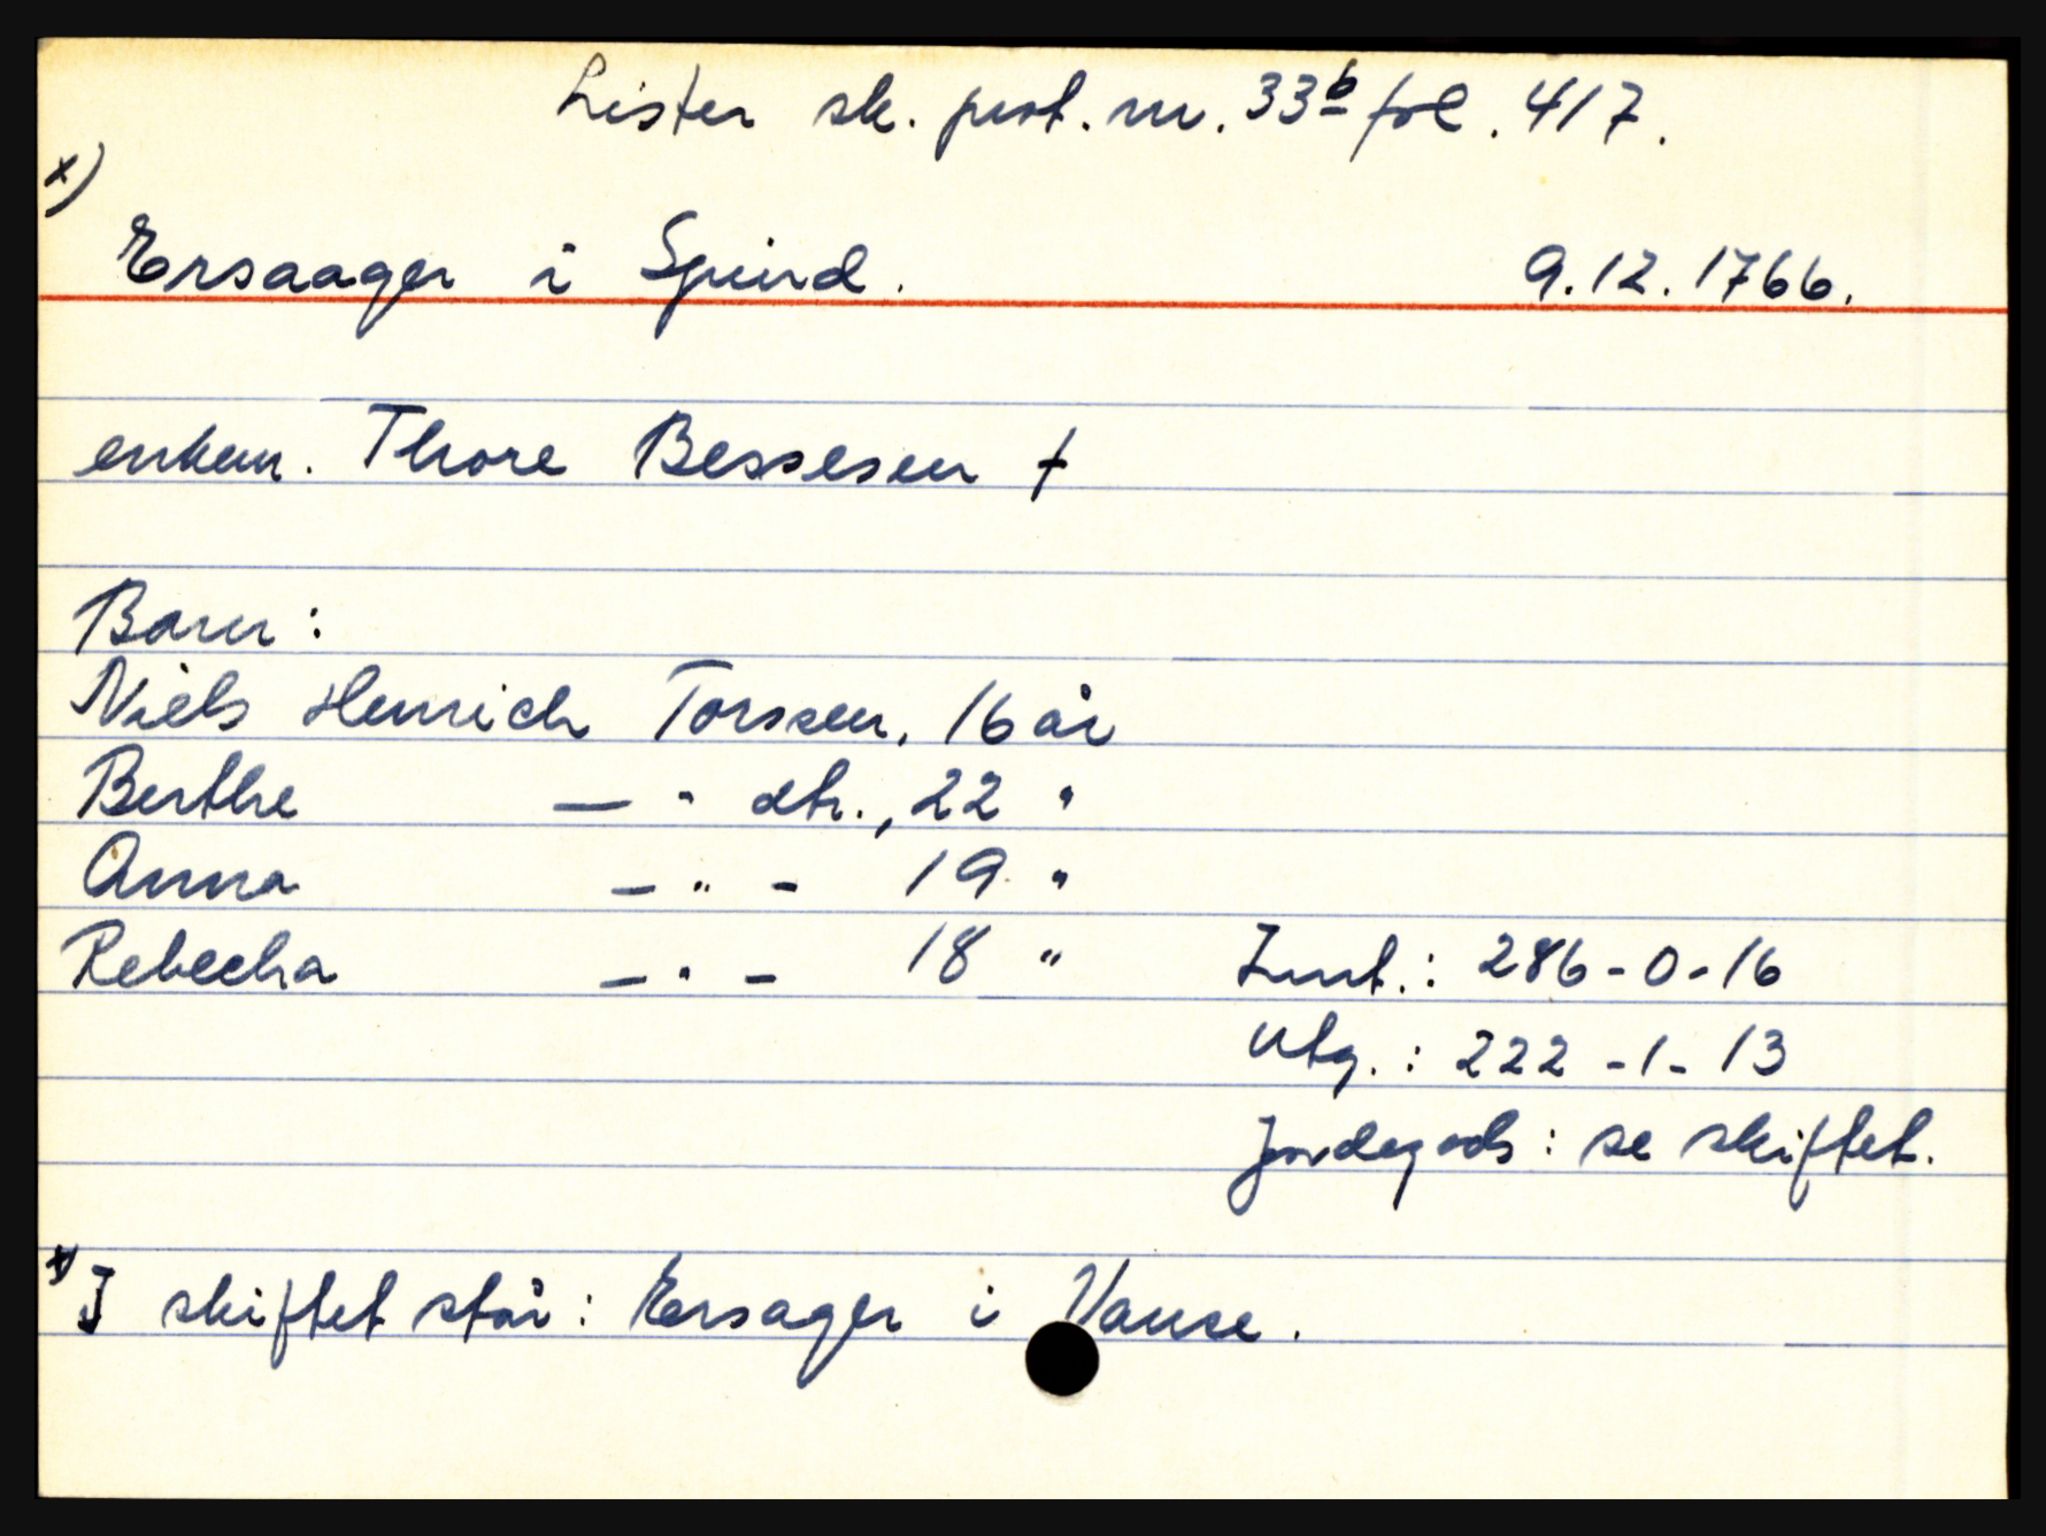 Lister sk. prot. nr. 33b fol. 417.
x)
Ersaager i Spind. 9.12.1766.
enkem. Thore Bessesen †
Barn:
Niels Henrich Torssen, 16 år
Berthe — " dtr., 22 "
Anna - " - 19 "
Rebecha - " - 18 " Innt.: 286-0-16
Utg.: 222-1-13
Jordegods: se skiftet.
x) I skiftet står: Ersager i Vanse.